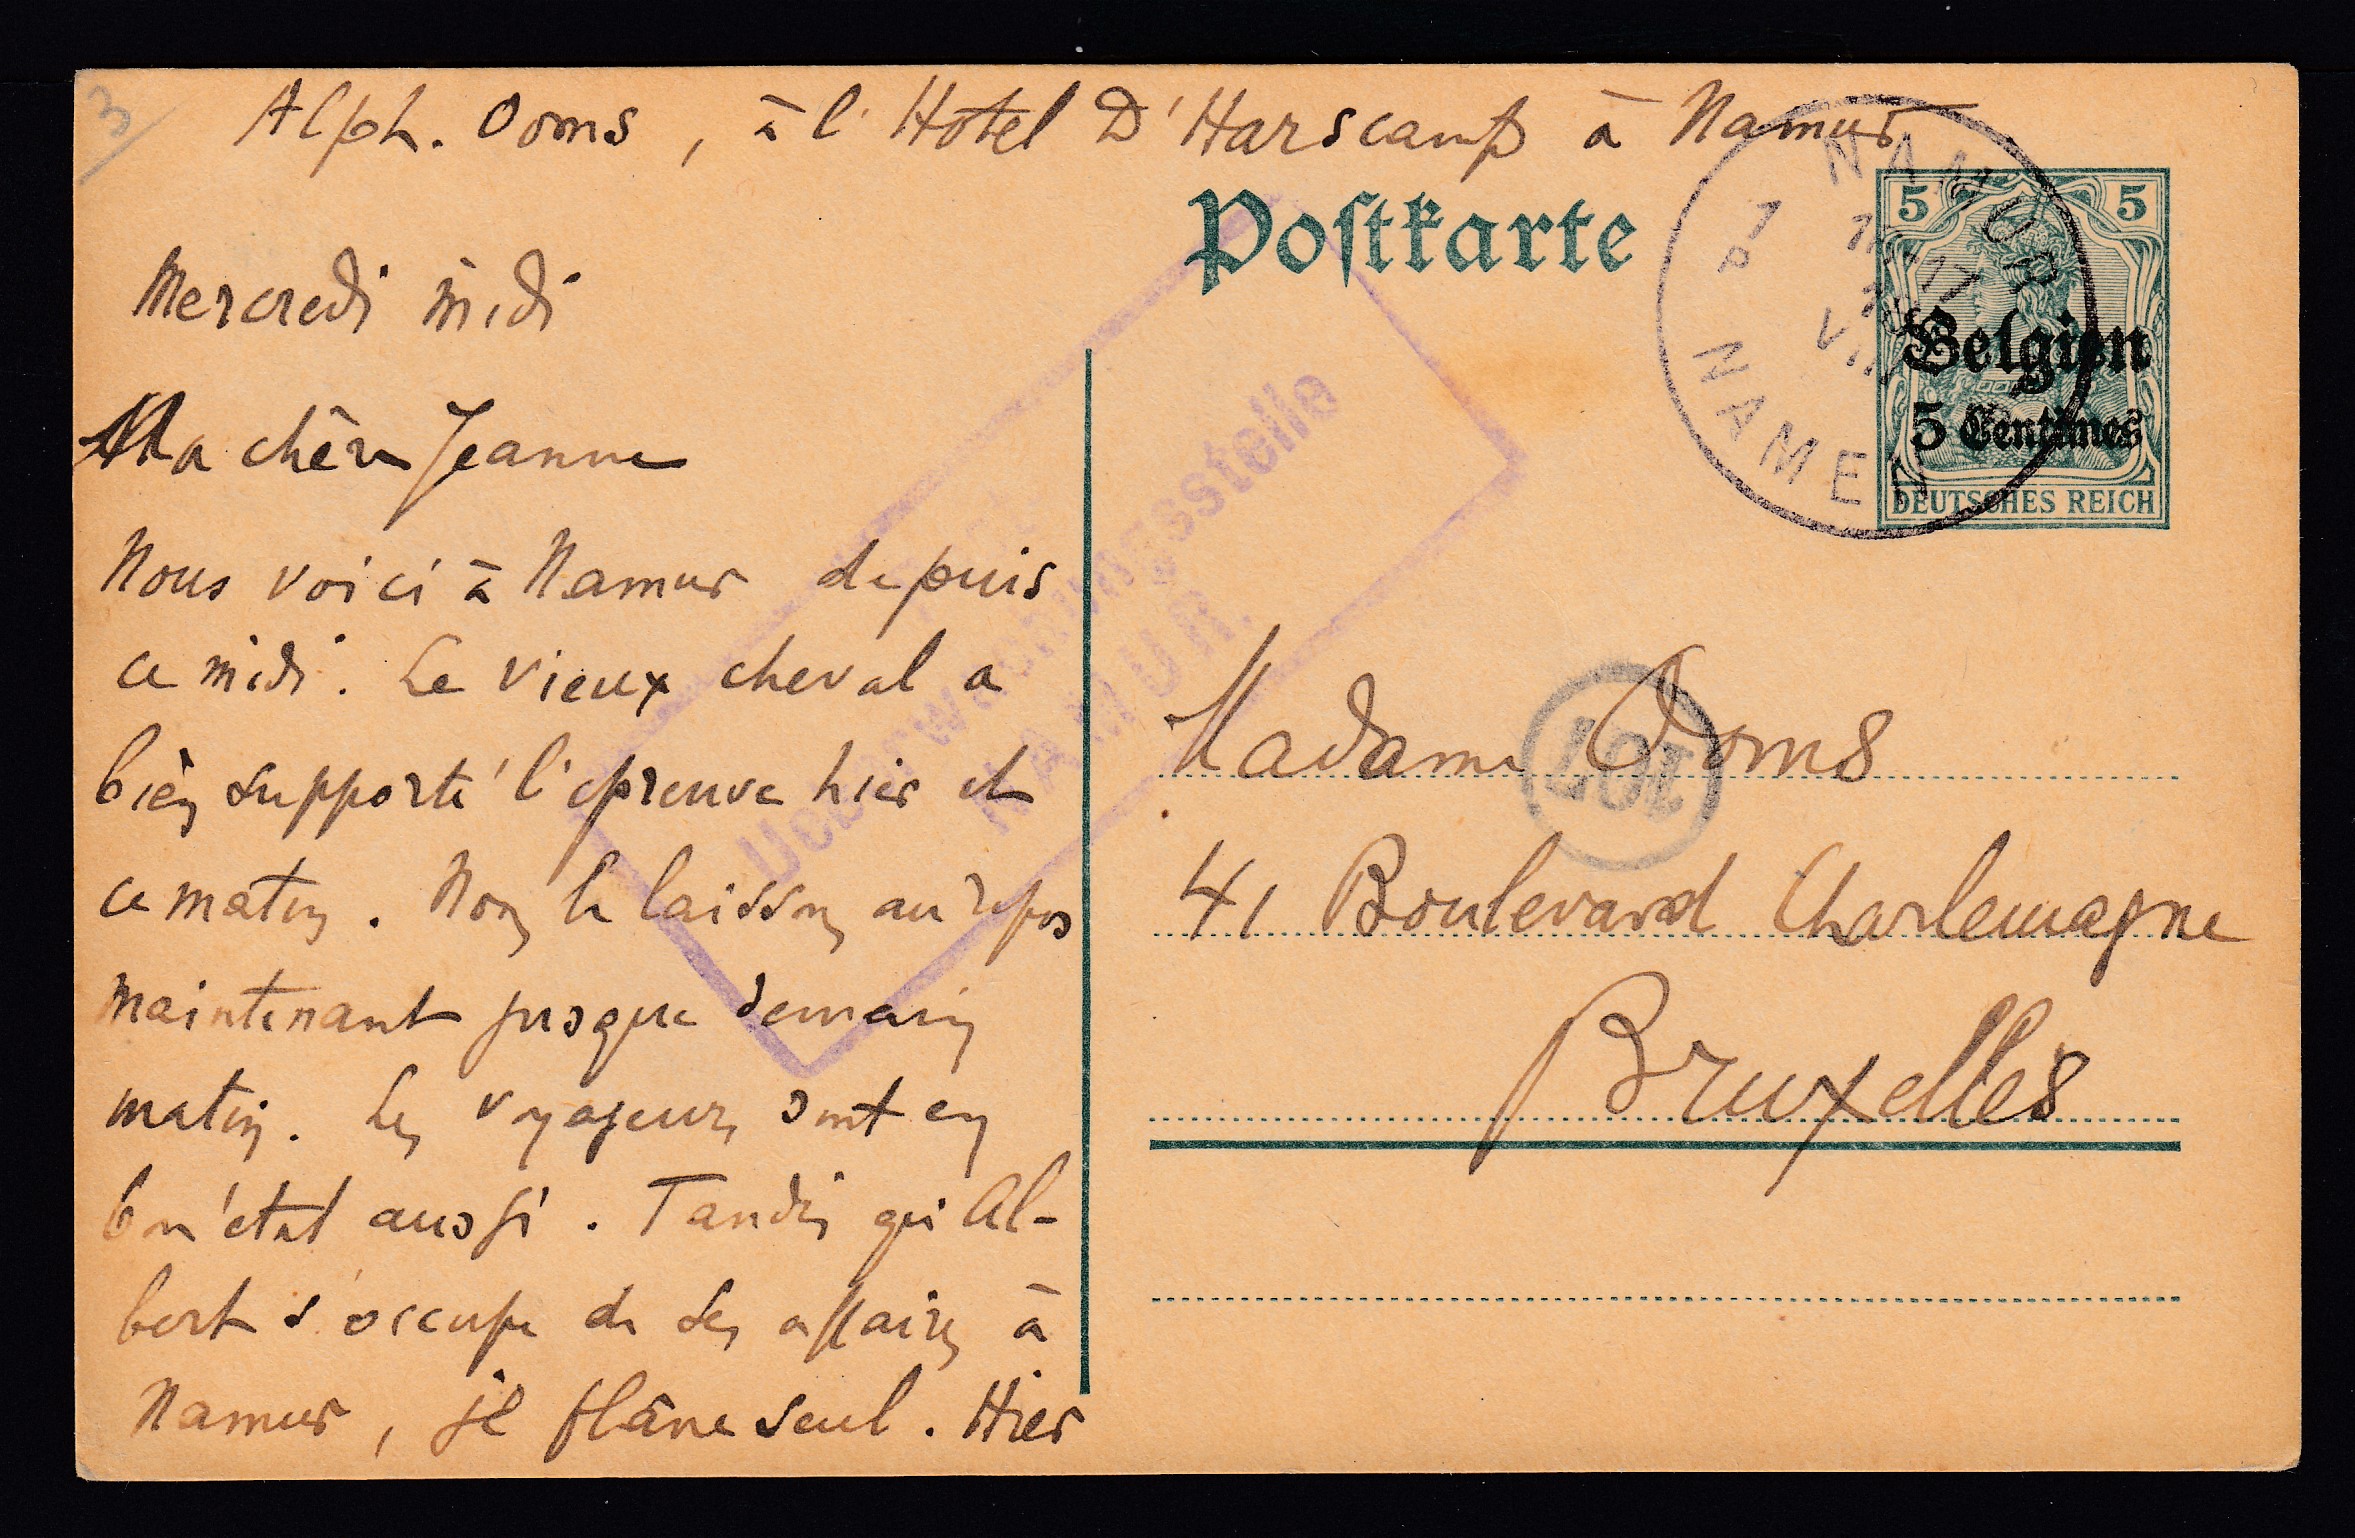 3
Alph. Ooms, à l'Hotel D'Harscamp à Namur
Postkarte
NAMUR
NAMEN
5 5
Belgien
5 Centimes
DEUTSCHES REICH
Mercredi midi
Ma chère Jeanne
Nous voici à Namur depuis
ce midi. Le vieux cheval a
bien supporté l'épreuve hier et
ce matin. Nous le laissons au repos
maintenant jusque demain
matin. Les voyageurs sont en
bon état aussi. Tandis qu'Al-
bert s'occupe de ses affaires à
Namur, je flâne seul. Hier
Ueberwachungsstelle
NAMUR.
Madame Ooms
107
41 Boulevard Charlemagne
Bruxelles